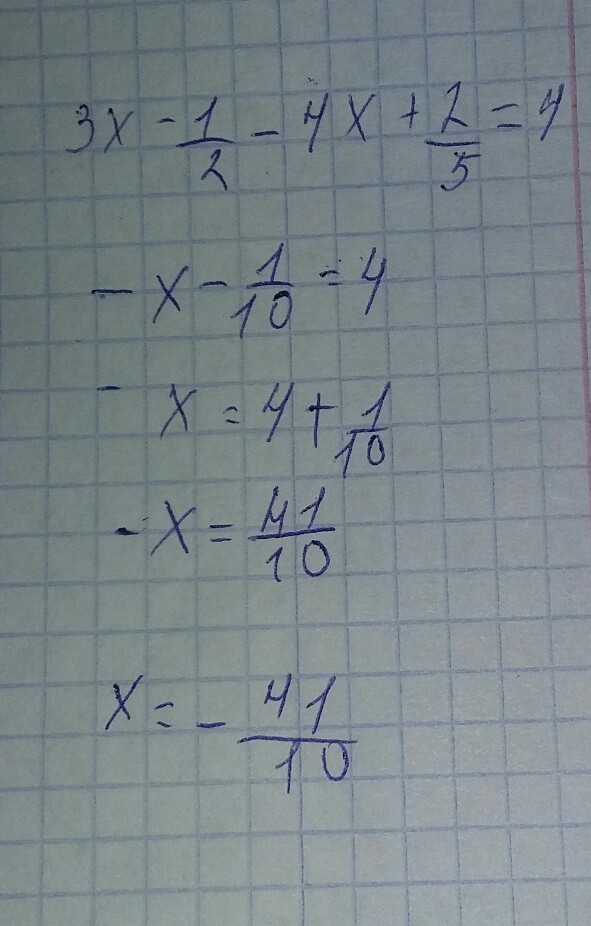 3x - 1/2 - 4x + 2/5 = 4
- x - 1/10 = 4
- x = 4 + 1/10
- x = 41/10
x = - 41/10